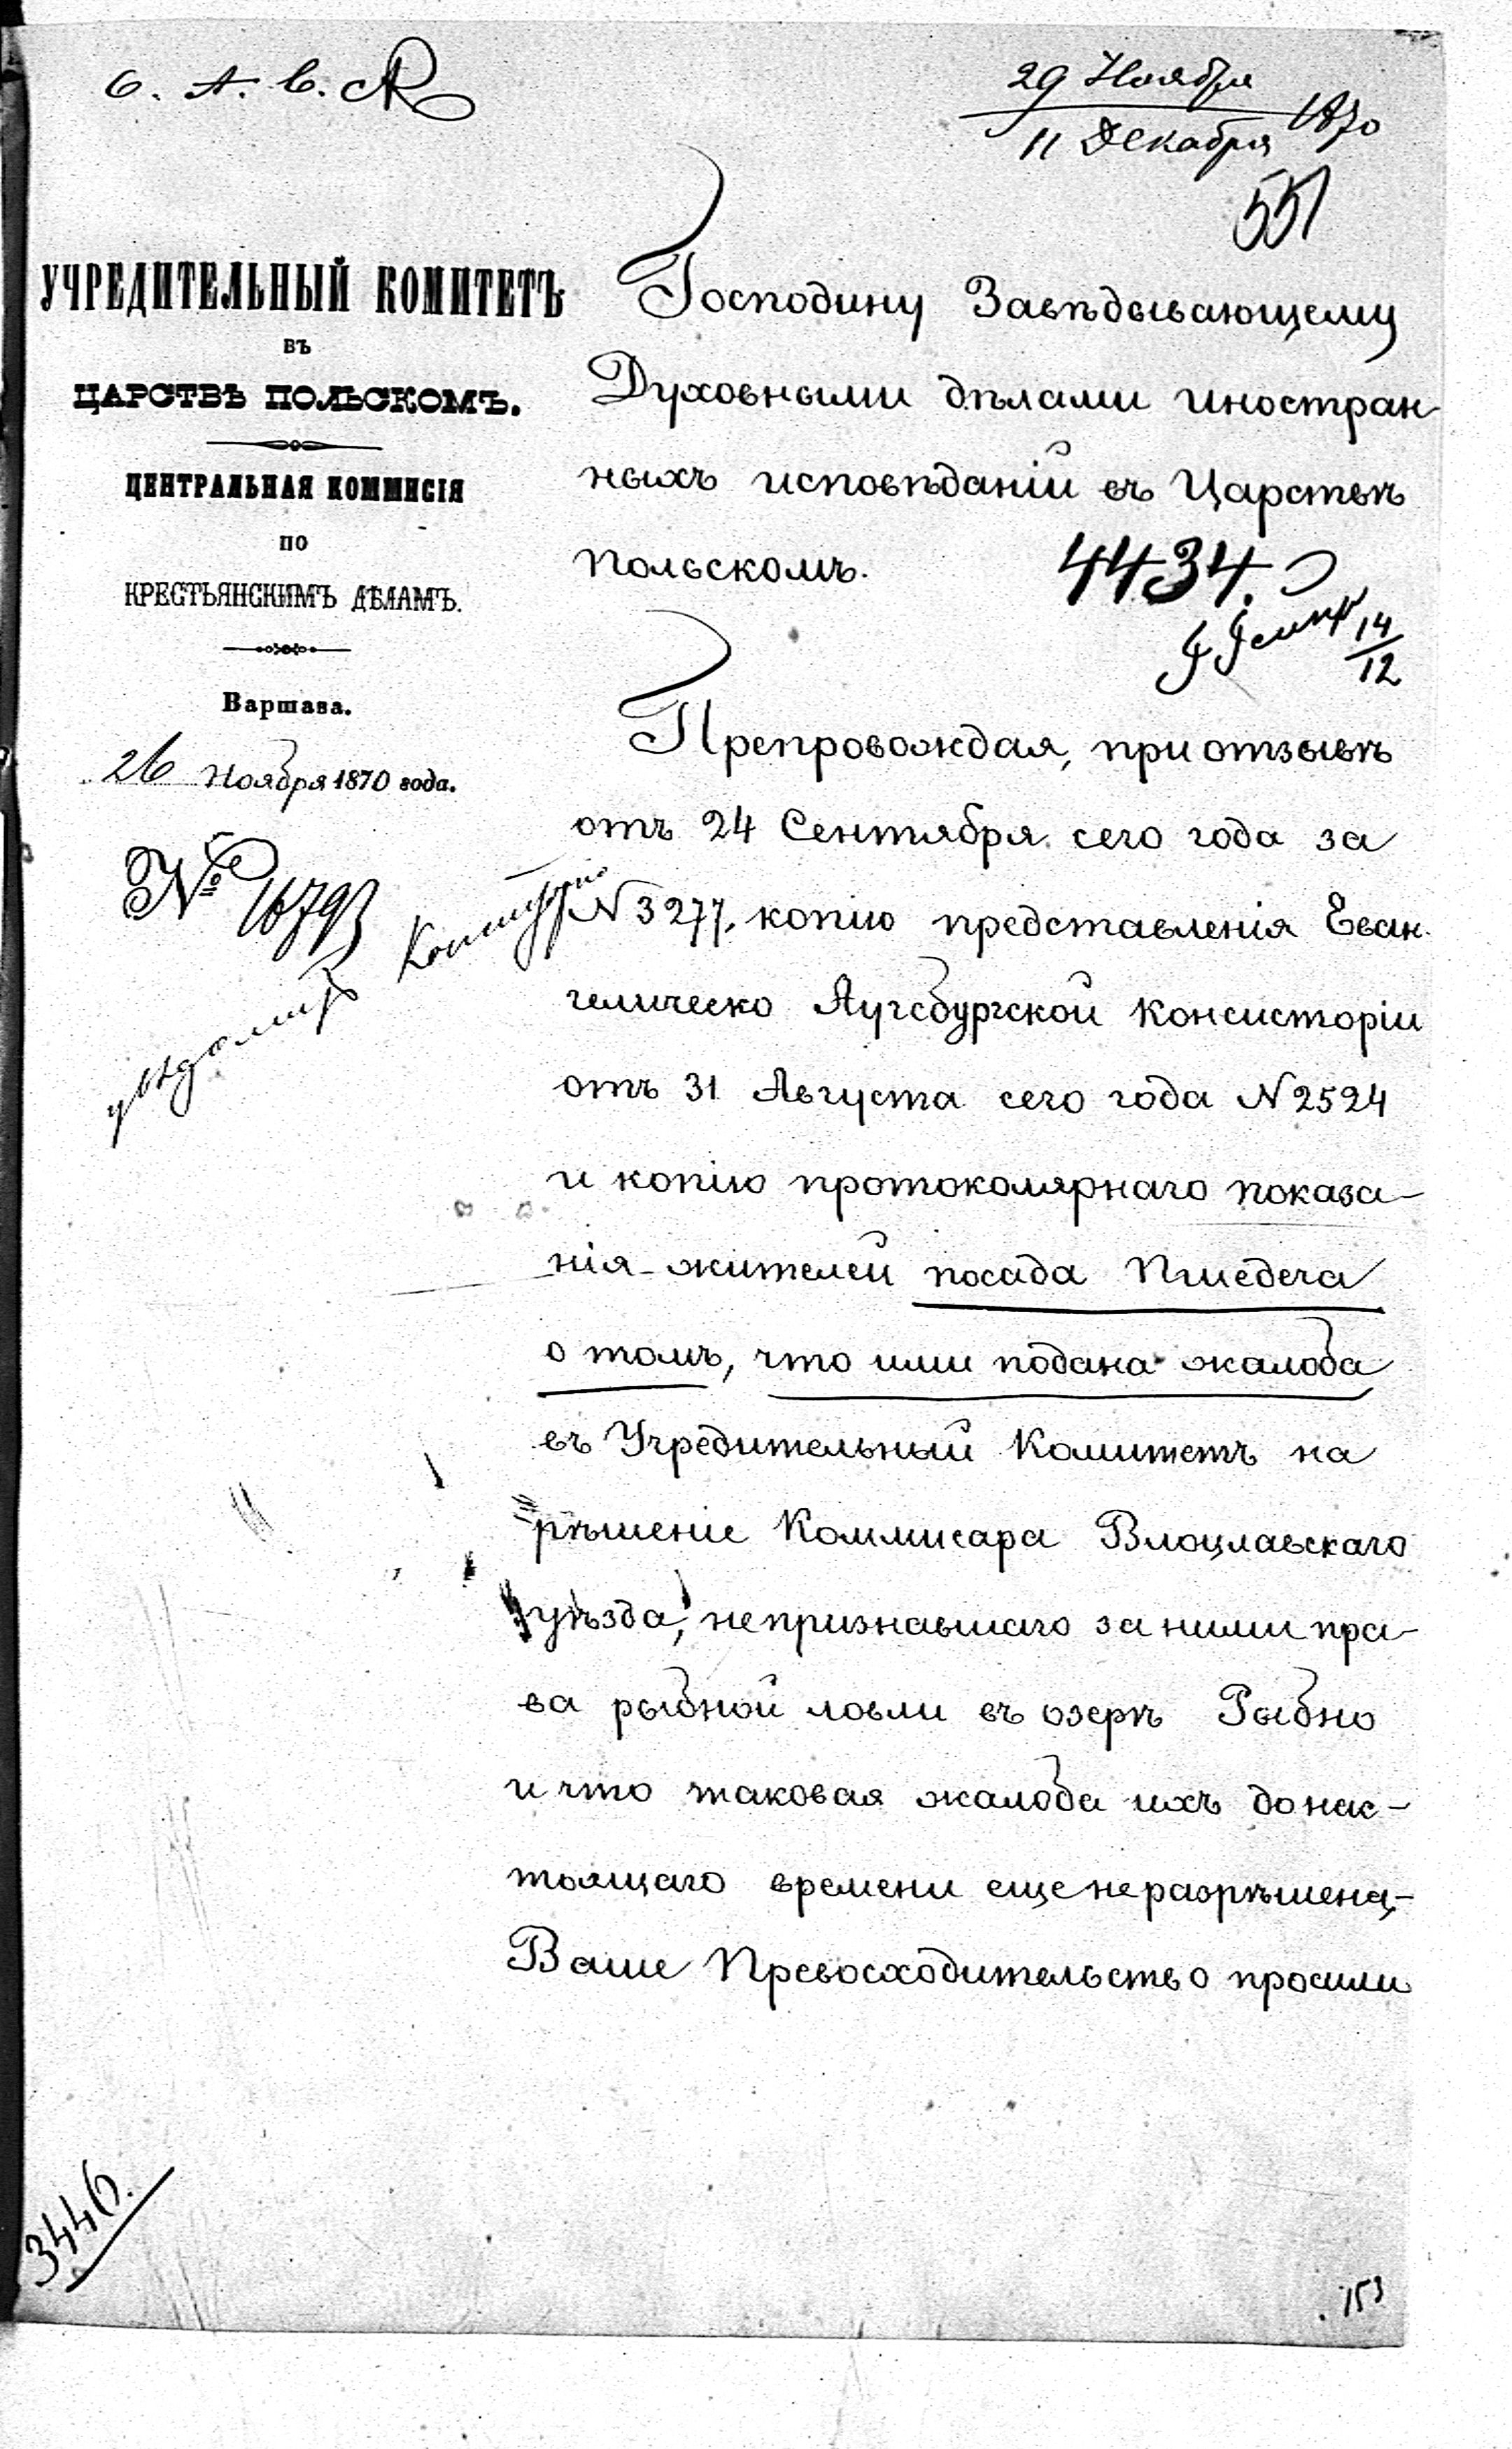 29 Ноября
11 Декабря 1870
551
УЧРЕДИТЕЛЬНЫЙ КОМИТЕТЪ
ВЪ
ЦАРСТВѢ ПОЛЬСКОМЪ.
ЦЕНТРАЛЬНАЯ КОММИСІЯ
ПО
КРЕСТЬЯНСКИМЪ ДѢЛАМЪ.
Варшава.
26 Ноября 1870 года.
№ 16793
Господину Завѣдывающему
Духовными дѣлами иностран
ныхъ исповѣданій въ Царствѣ
Польскомъ.
4434.
14
12
Препровождая, при отзывѣ
отъ 24 Сентября сего года за
N 3277, копію представленія Еван
гелическо Аугсбургской Консисторіи
отъ 31 Августа сего года N 2524
и копію протоколярнаго показа-
нія жителей посада Пшедеча
о томъ, что ими подана жалоба
въ Учредительный Комитетъ на
рѣшеніе Коммисара Влоцлавскаго
уѣзда, непризнавшаго за ними пра-
ва рыбной ловли въ озерѣ Рыбно
и что таковая жалоба ихъ до нас-
тоящаго времени еще не разрѣшена,-
Ваше Превосходительство просили
3446.
153